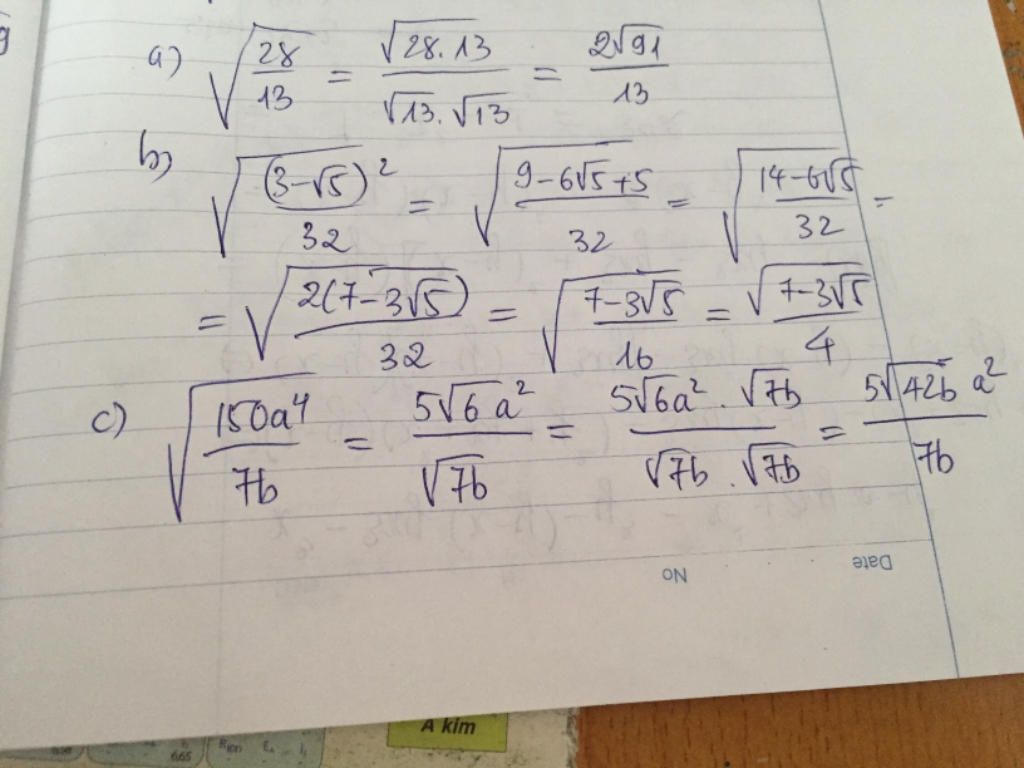 a) √(28/13) = √(28.13)/(√13.√13) = 2√91/13
b) √((3-√5)²/32) = √((9-6√5+5)/32) = √((14-6√5)/32) =
= √(2(7-3√5)/32) = √((7-3√5)/16) = √(7-3√5)/4
c) √(150a⁴/7b) = 5√6a²/√7b = 5√6a².√7b/(√7b.√7b) = 5√42b a²/7b
No Date
A kim